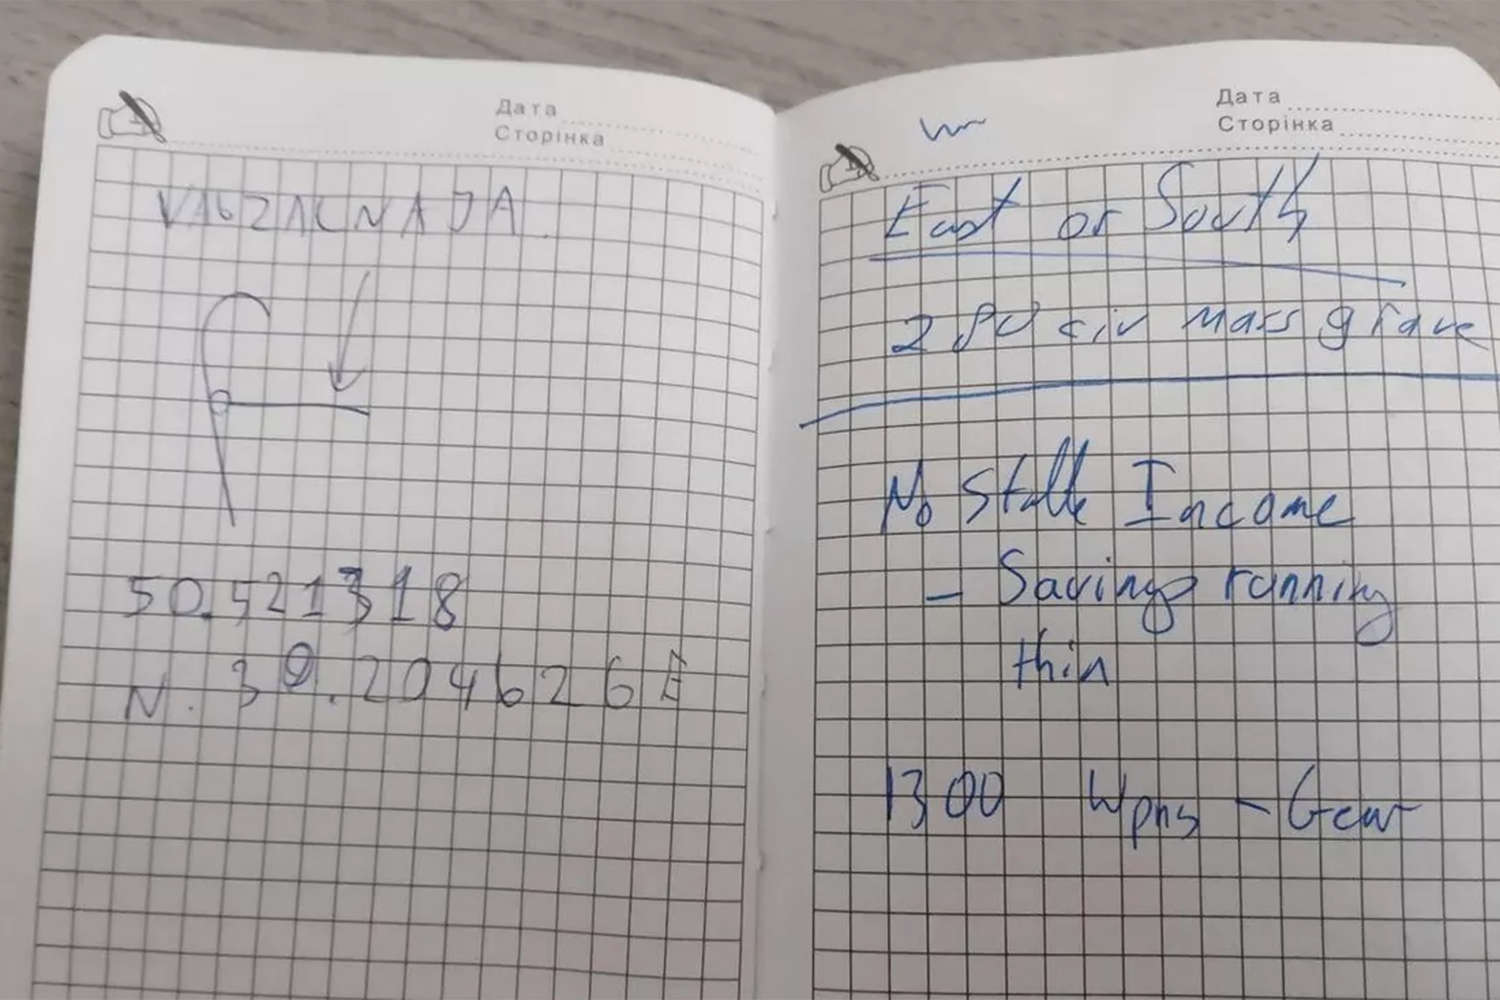 Дата
Сторінка
VAGZALNAJA.
50.521318
N. 30.204626E
Дата
Сторінка
East or South
280 civ mass grave
No Stable Income
- Savings running
thin
1300 Wpns - Gear